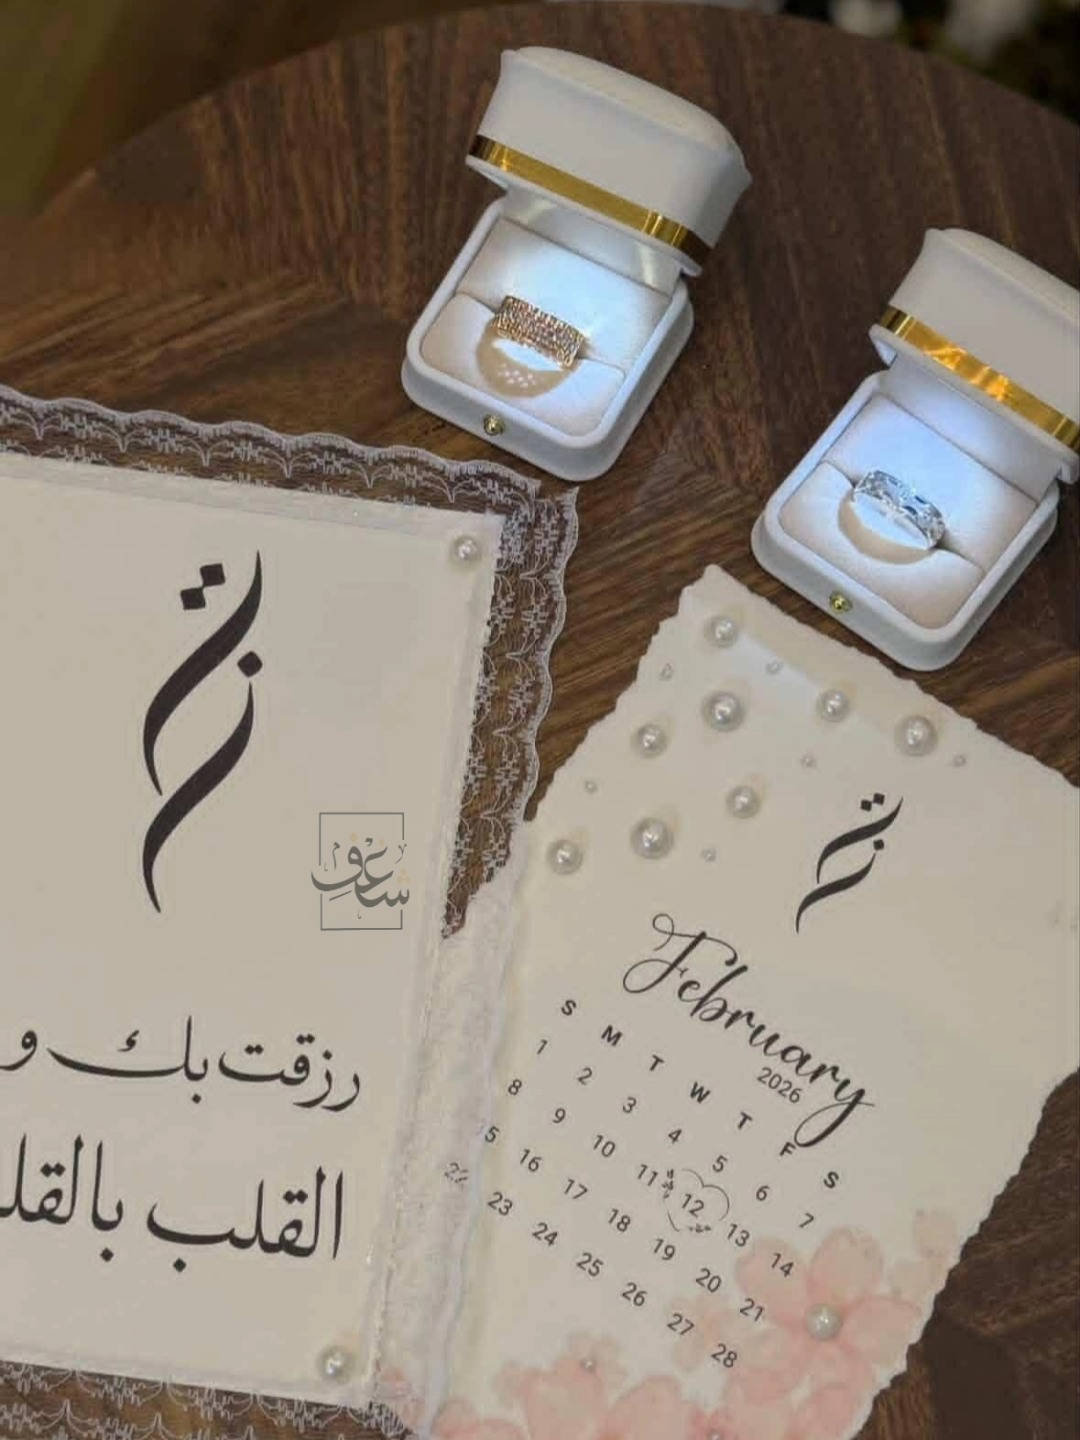 شاعف
رزقت بك و
القلب بالقلـ
February
2026
S M T W T F S
1 2 3 4 5 6 7
8 9 10 11 12 13 14
15 16 17 18 19 20 21
22 23 24 25 26 27 28